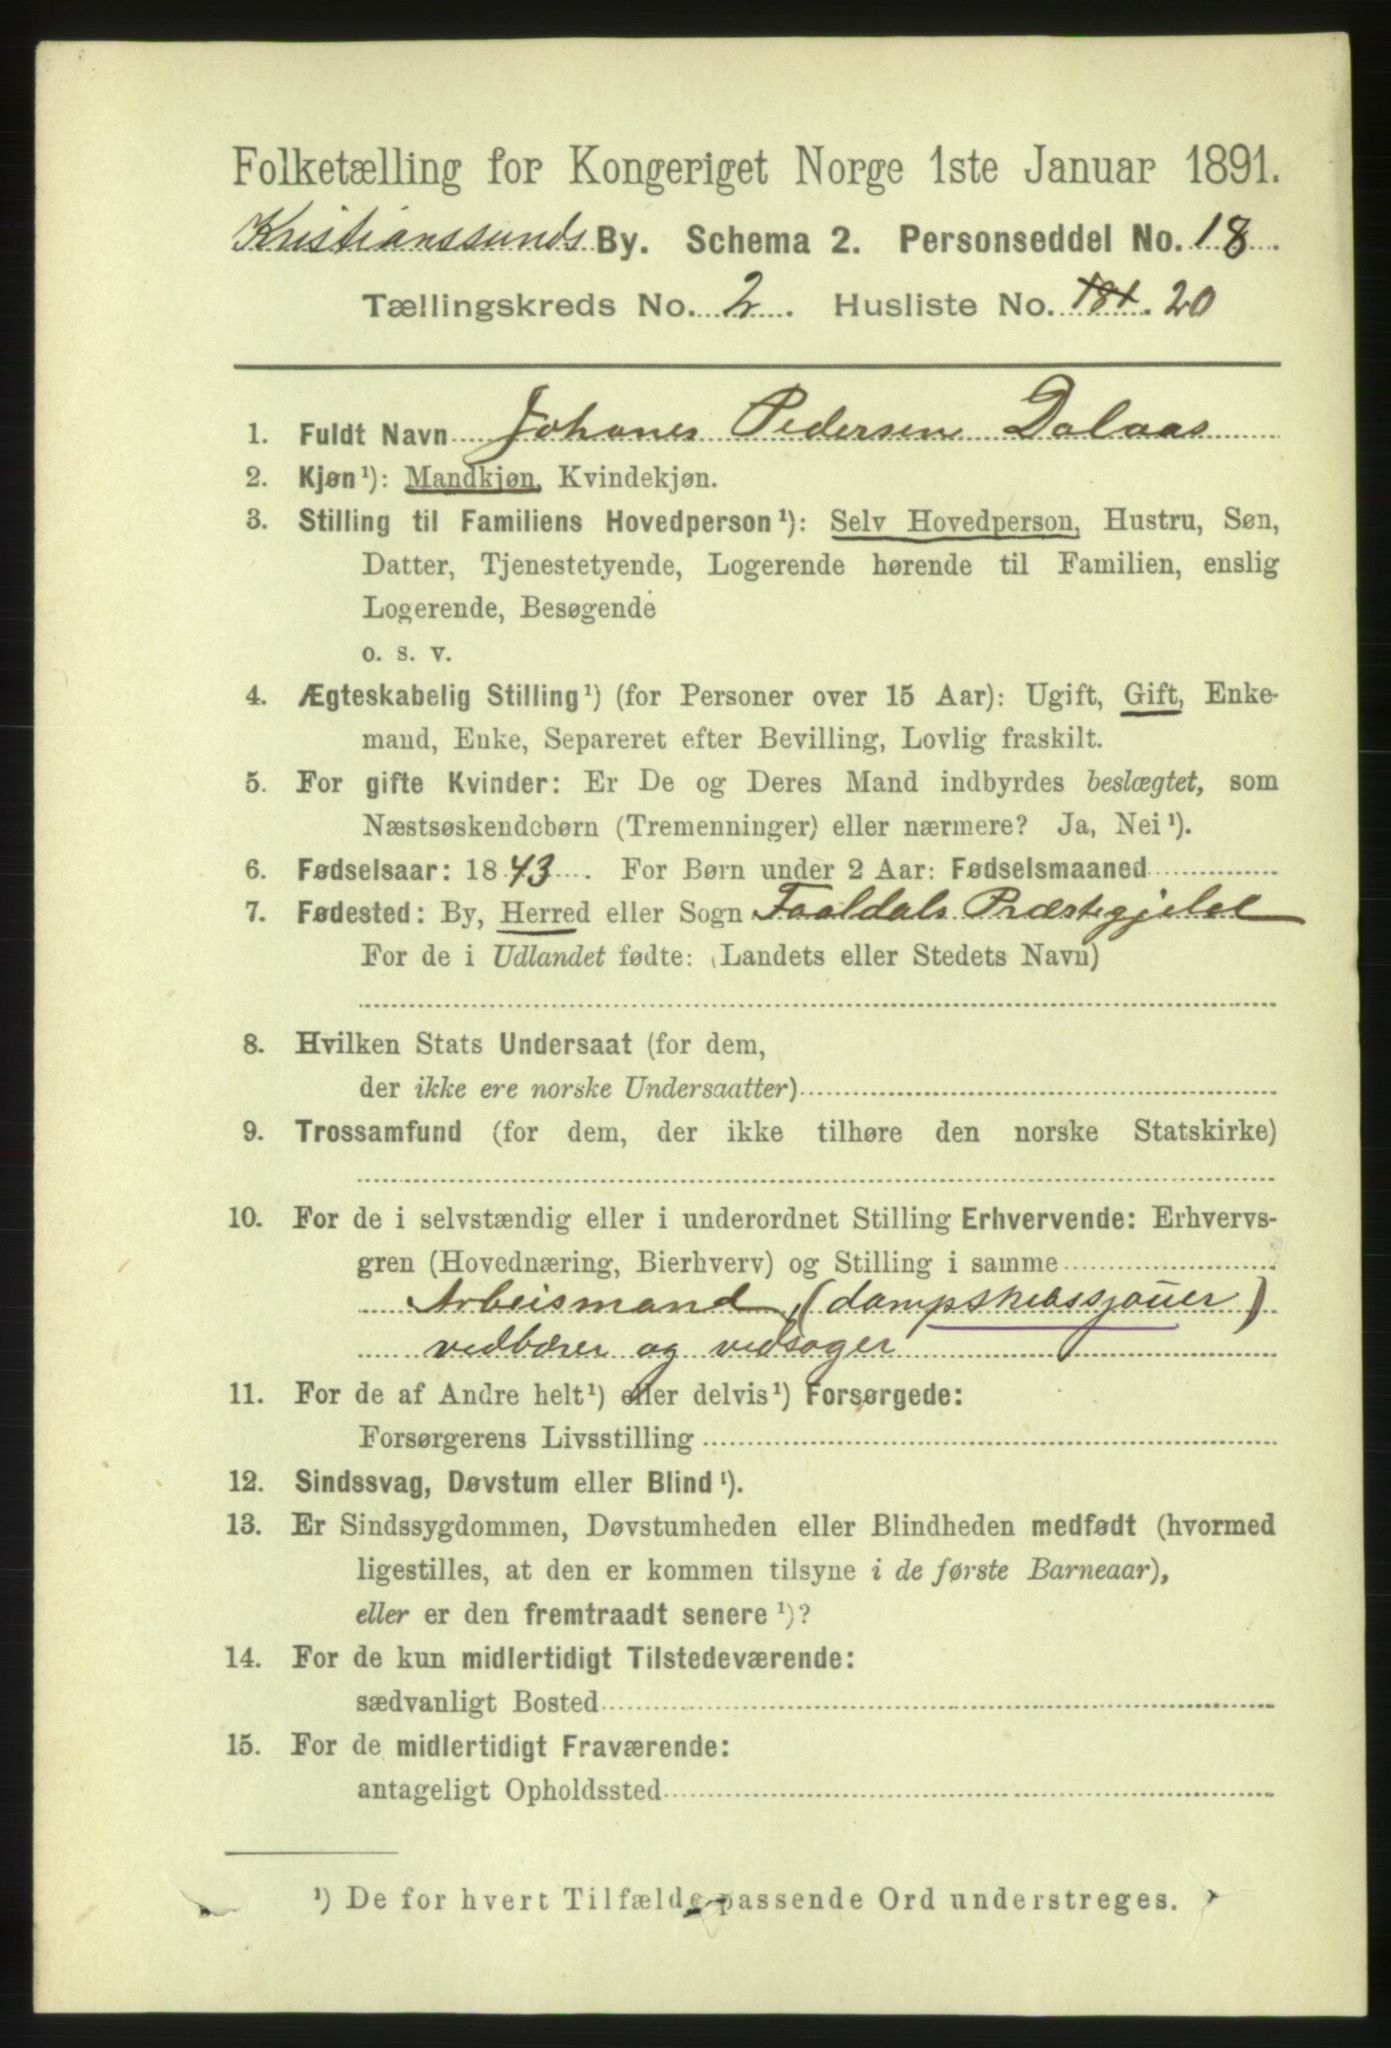 Folketælling for Kongeriget Norge 1ste Januar 1891.
Kristianssunds By. Schema 2. Personseddel No. 18.
Tællingskreds No. 2. Husliste No. 181. 20
1. Fuldt Navn Johanes Pedersen Dalaas
2. Kjøn¹): Mandkjøn, Kvindekjøn.
3. Stilling til Familiens Hovedperson¹): Selv Hovedperson, Hustru, Søn,
Datter, Tjenestetyende, Logerende hørende til Familien, enslig
Logerende, Besøgende
o. s. v.
4. Ægteskabelig Stilling¹) (for Personer over 15 Aar): Ugift, Gift, Enke-
mand, Enke, Separeret efter Bevilling, Lovlig fraskilt.
5. For gifte Kvinder: Er De og Deres Mand indbyrdes beslægtet, som
Næstsøskendebørn (Tremenninger) eller nærmere? Ja, Nei¹).
6. Fødselsaar: 1843. For Børn under 2 Aar: Fødselsmaaned
7. Fødested: By, Herred eller Sogn Faaldals Præstegjelel
For de i Udlandet fødte: (Landets eller Stedets Navn)
8. Hvilken Stats Undersaat (for dem,
der ikke ere norske Undersaatter)
9. Trossamfund (for dem, der ikke tilhøre den norske Statskirke)
10. For de i selvstændig eller i underordnet Stilling Erhvervende: Erhvervs-
gren (Hovednæring, Bierhverv) og Stilling i samme
Arbeismand, (dampskibssjouer)
vedbærer og vedsager
11. For de af Andre helt¹) eller delvis¹) Forsørgede:
Forsørgerens Livsstilling
12. Sindssvag, Døvstum eller Blind¹).
13. Er Sindssygdommen, Døvstumheden eller Blindheden medfødt (hvormed
ligestilles, at den er kommen tilsyne i de første Barneaar),
eller er den fremtraadt senere¹)?
14. For de kun midlertidigt Tilstedeværende:
sædvanligt Bosted
15. For de midlertidigt Fraværende:
antageligt Opholdssted
¹) De for hvert Tilfælde passende Ord understreges.